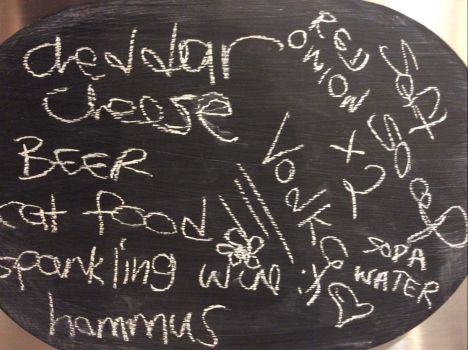 cheddar
cheese
BEER
cat food
sparkling wine
hammus
RED
ONION
x 2
Vodka
SODA
WATER